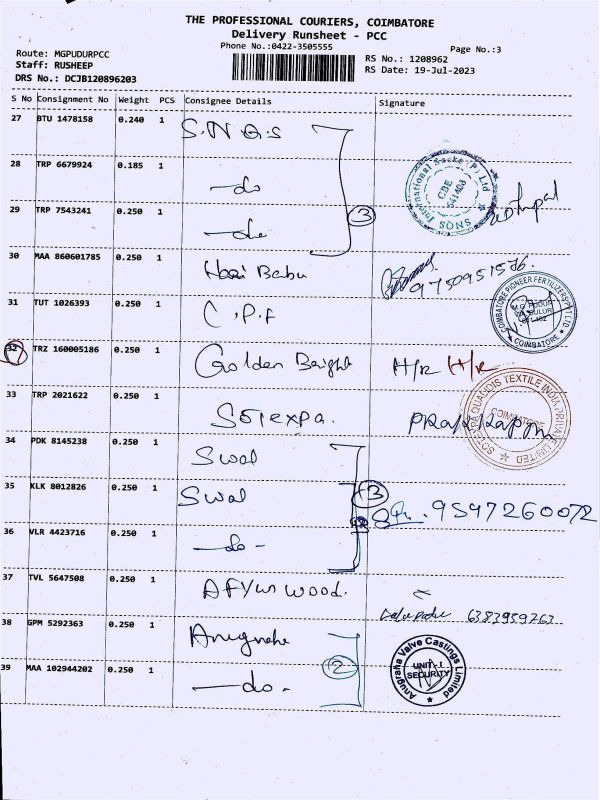 THE PROFESSIONAL COURIERS, COIMBATORE
Delivery Runsheet - PCC
Phone No.:0422-3505555
Page No.:3
Route: MGPUDURPCC
RS No.: 1208962
Staff: RUSHEEP
RS Date: 19-Jul-2023
DRS No.: DCJB120896203
S No Consignment No Weight PCS Consignee Details Signature
27 BTU 1478158 0.240 1 S.N.Q.S
28 TRP 6679924 0.185 1 -do
29 TRP 7543241 0.250 1 -do
3
International Socks (P) Ltd
CBE
641403
SQNS
30 MAA 860601785 0.250 1 Hari Babu 9750951576.
31 TUT 1026393 0.250 1 C.P.F
COIMBATORE PIONEER FERTILIZERS PVT LTD.
COIMBATORE
32 TRZ 160005186 0.250 1 Golden Bright H/R H/R
33 TRP 2021622 0.250 1 Sotexpa.
SOTEXPA QUALIDIS TEXTILE INDIA PRIVATE LIMITED
COIMBATORE
34 PDK 8145238 0.250 1 Swal
35 KLK 8012826 0.250 1 Swal
3
9597260072
36 VLR 4423716 0.250 1 -do-
37 TVL 5647508 0.250 1 Afyun wood.
6383959763
38 GPM 5292363 0.250 1 Anugrahe
39 MAA 102944202 0.250 1 -do-
2
Anugraha Valve Castings Limited
UNIT-I
SECURITY